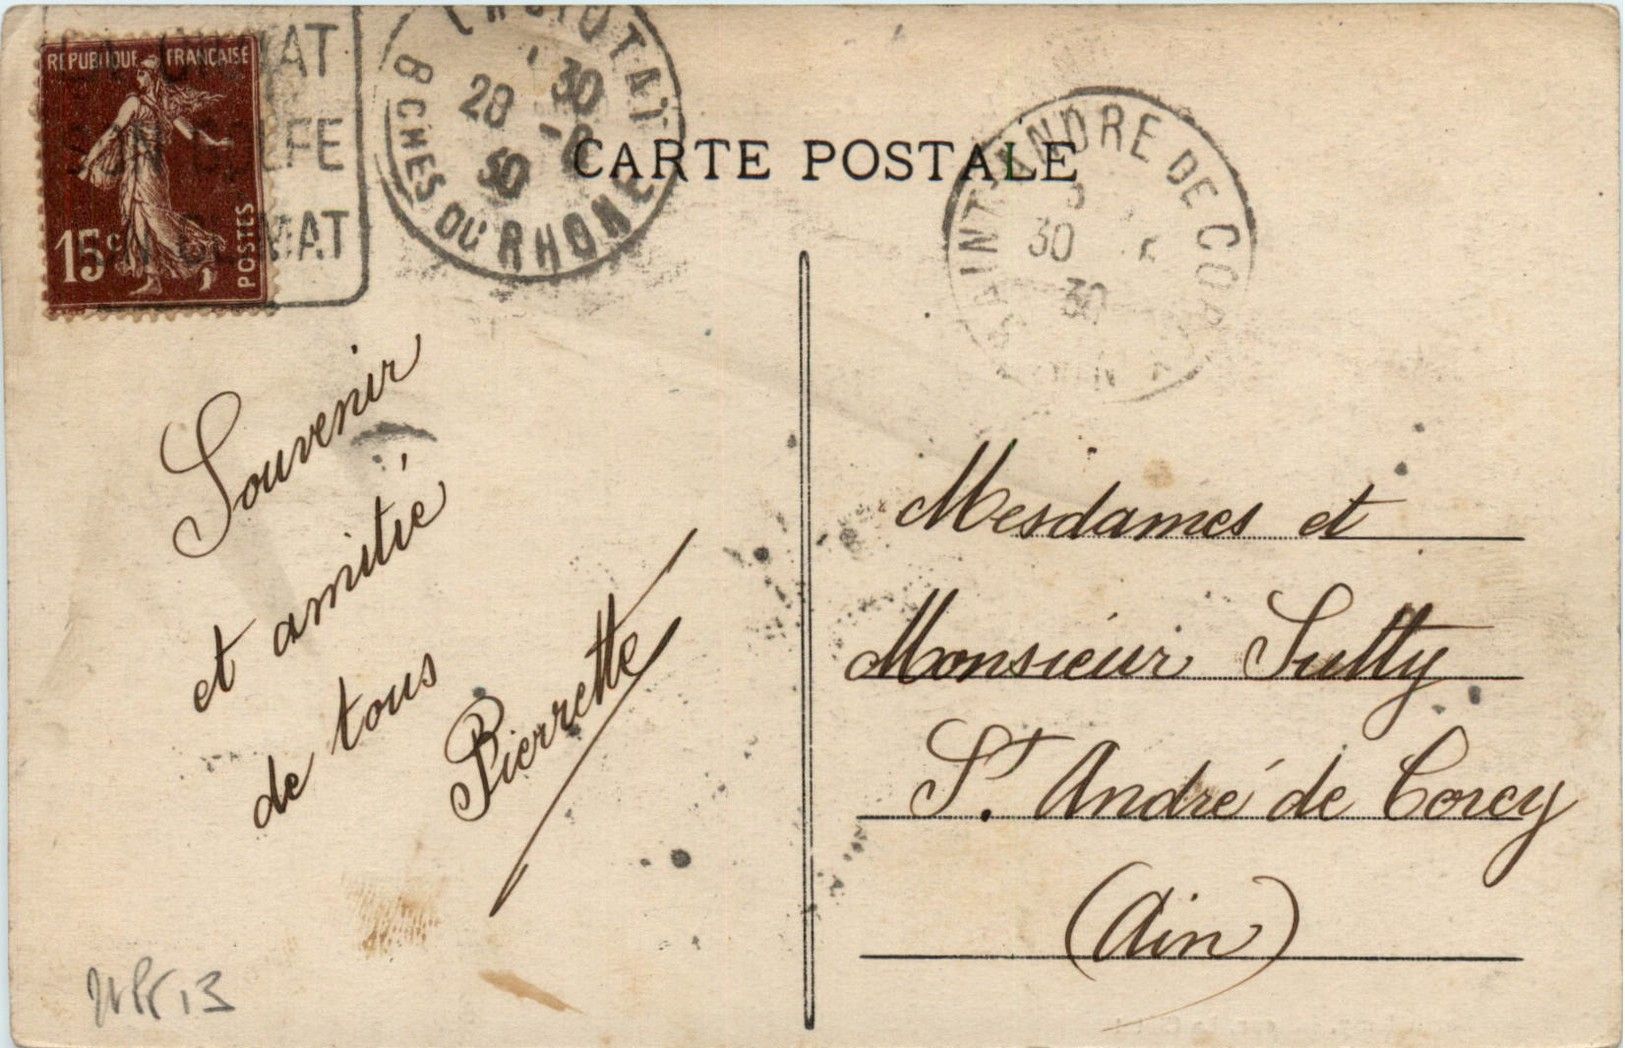 REPUBLIQUE FRANÇAISE
15c POSTES
SON GOLFE
SON CLIMAT
LA CIOTAT
BCHES DU RHONE
30
28 -6
30
CARTE POSTALE
SAINT-ANDRE DE COR
AIN
30
30
Souvenir
et amitié
de tous
Pierrette
Mesdames et
Monsieur Sutty
St. André de Corcy
(Ain)
13